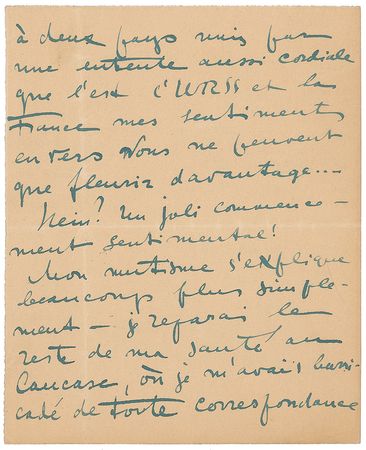 à deux pays unis par
une entente aussi cordiale
que l'est l'URSS et la
France mes sentiments
envers Vous ne peuvent
que fleurir davantage...
Hein? Un joli commence-
ment sentimental!
Mon mutisme s'explique
beaucoup plus simple-
ment - je reparais le
reste de ma santé au
Caucase, où je m'avais barri-
cadé de toute correspondance